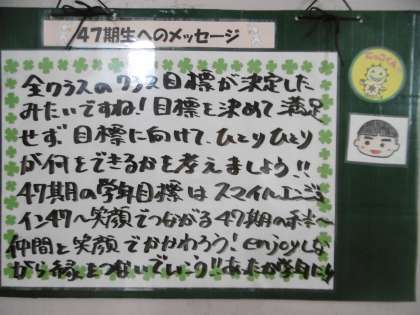 47期生へのメッセージ
全クラスのクラス目標が決定した
みたいですね！目標を決めて満足
せず目標に向けて、ひとりひとり
が何をできるかを考えましょう！！
47期の学年目標はスマイルエンジョ
イン47～笑顔でつながる47期の
仲間と笑顔でかかわろう！enjoyしな
がら縁をつないでいこう！！